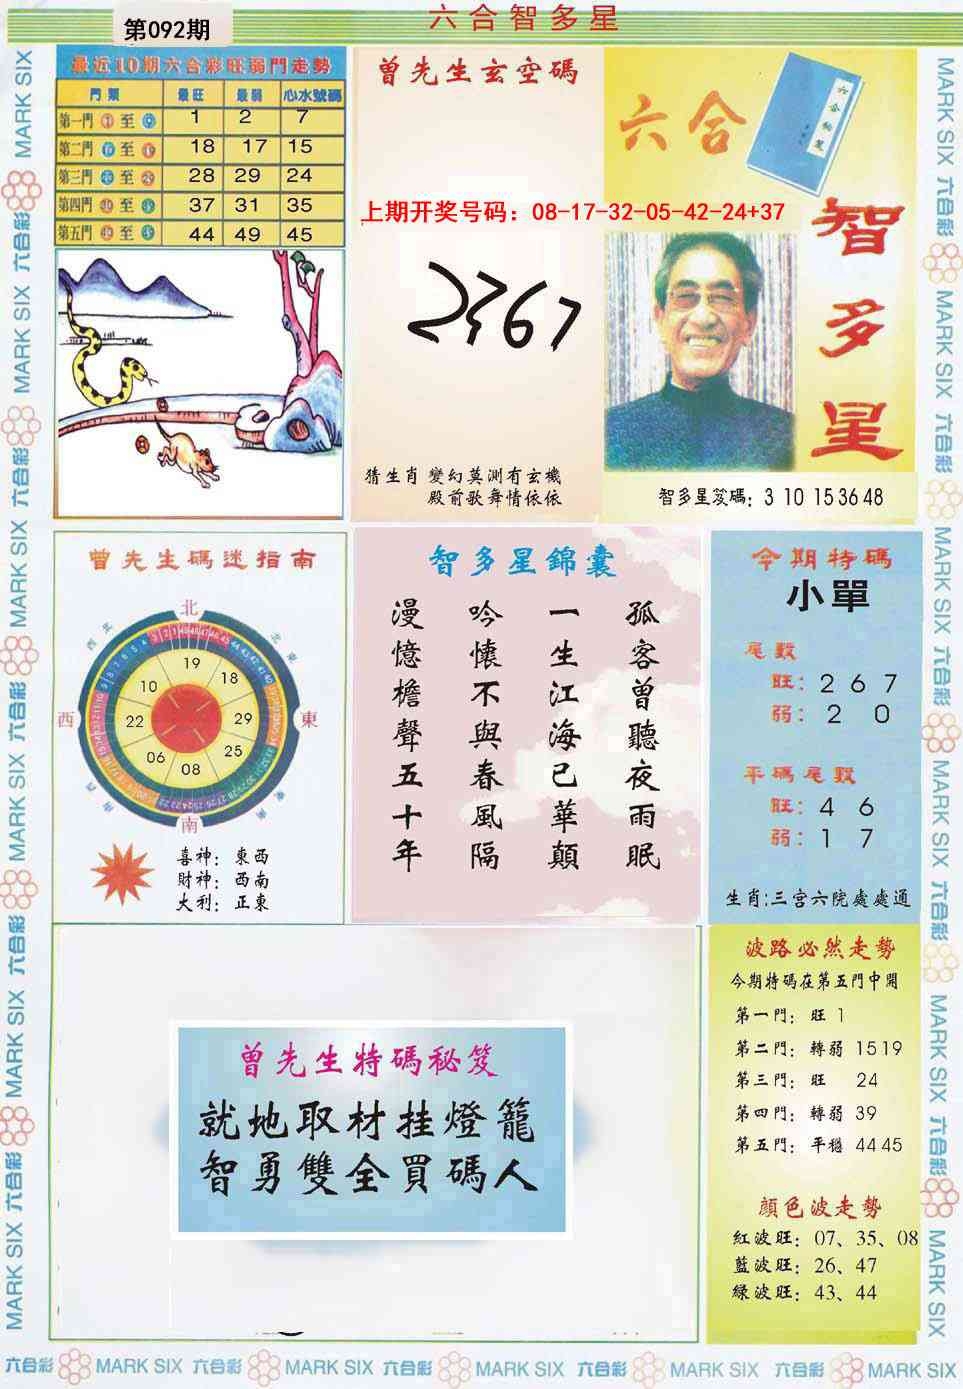 第092期
六合智多星
最近10期六合彩旺弱門走勢
門類 最旺 最弱 心水號碼
第一門 至 1 2 7
第二門 至 18 17 15
第三門 至 28 29 24
第四門 至 37 31 35
第五門 至 44 49 45
曾先生玄空碼
上期开奖号码：08-17-32-05-42-24+37
2367
猜生肖 變幻莫測有玄機
殿前歌舞情依依
六合
智多星
智多星笈碼：3 10 15 36 48
曾先生碼迷指南
北
西 東
南
19
10 18
22 29
06 25
08
喜神：東西
財神：西南
大利：正東
智多星錦囊
孤客曾聽夜雨眠
一生江海已華顛
吟懷不與春風隔
漫憶檐聲五十年
今期特碼
小單
尾數
旺：2 6 7
弱：2 0
平碼尾數
旺：4 6
弱：1 7
生肖:三宮六院處處通
曾先生特碼秘笈
就地取材挂燈籠
智勇雙全買碼人
波路必然走勢
今期特碼在第五門中開
第一門：旺 1
第二門：轉弱 15 19
第三門：旺 24
第四門：轉弱 39
第五門：平穩 44 45
顏色波走勢
紅波旺：07、35、08
藍波旺：26、47
綠波旺：43、44
六合彩 MARK SIX 六合彩 MARK SIX 六合彩 MARK SIX 六合彩 MARK SIX 六合彩 MARK SIX